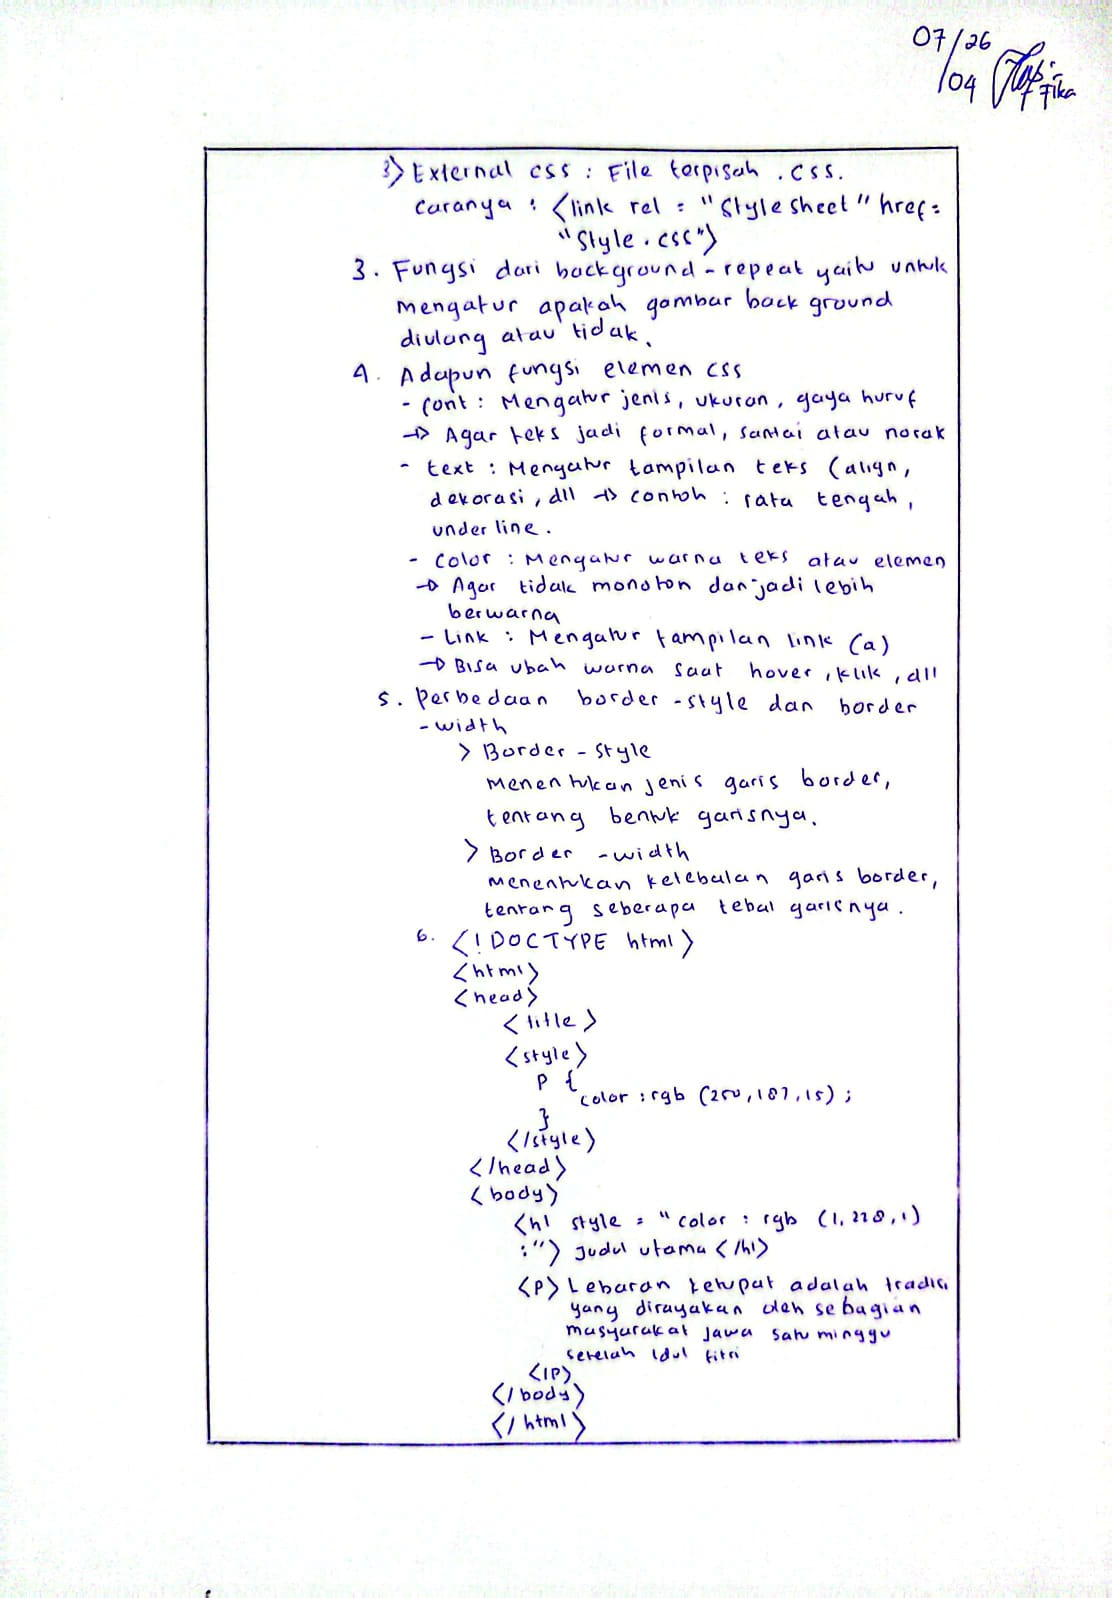 07/26
/04 Fika
3) External css : File terpisah .css.
Caranya : <link rel = "Style sheet" href=
"Style.css">
3. Fungsi dari background-repeat yaitu untuk
mengatur apakah gambar back ground
diulang atau tidak.
4. Adapun fungsi elemen css
- font : Mengatur jenis, ukuran, gaya huruf
-> Agar teks jadi formal, santai atau norak
- text : Mengatur tampilan teks (align,
dekorasi, dll -> contoh : rata tengah,
under line.
- Color : Mengatur warna teks atau elemen
-> Agar tidak monoton dan jadi lebih
berwarna
- Link : Mengatur tampilan link (a)
-> Bisa ubah warna saat hover, klik, dll
5. Perbedaan border-style dan border
-width
> Border - style
Menentukan jenis garis border,
tentang bentuk garisnya.
> Border -width
Menentukan ketebalan garis border,
tentang seberapa tebal garisnya.
6. <!DOCTYPE html>
<html>
<head>
<title>
<style>
P {
color : rgb (250,187,15);
}
</style>
</head>
<body>
<h1 style = "color : rgb (1, 228, 1)
;"> Judul utama </h1>
<P> Lebaran ketupat adalah tradisi
yang dirayakan oleh sebagian
masyarakat Jawa satu minggu
setelah Idul fitri
</P>
</body>
</html>